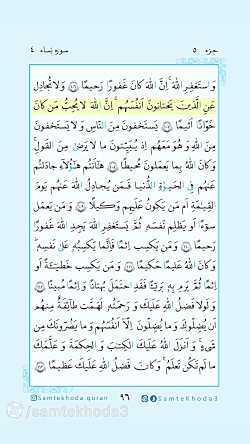 جزء ۵
سوره نساء ۴
وَ اسْتَغْفِرِ اللَّهَ ۖ إِنَّ اللَّهَ كَانَ غَفُورًا رَحِيمًا ﴿١٠٦﴾ وَ لَا تُجَادِلْ
عَنِ الَّذِينَ يَخْتَانُونَ أَنْفُسَهُمْ ۚ إِنَّ اللَّهَ لَا يُحِبُّ مَنْ كَانَ
خَوَّانًا أَثِيمًا ﴿١٠٧﴾ يَسْتَخْفُونَ مِنَ النَّاسِ وَ لَا يَسْتَخْفُونَ
مِنَ اللَّهِ وَ هُوَ مَعَهُمْ إِذْ يُبَيِّتُونَ مَا لَا يَرْضَىٰ مِنَ الْقَوْلِ ۚ
وَ كَانَ اللَّهُ بِمَا يَعْمَلُونَ مُحِيطًا ﴿١٠٨﴾ هَا أَنْتُمْ هَٰؤُلَاءِ جَادَلْتُمْ
عَنْهُمْ فِي الْحَيَوٰةِ الدُّنْيَا فَمَنْ يُجَادِلُ اللَّهَ عَنْهُمْ يَوْمَ
الْقِيَٰمَةِ أَمْ مَنْ يَكُونُ عَلَيْهِمْ وَكِيلًا ﴿١٠٩﴾ وَ مَنْ يَعْمَلْ
سُوءًا أَوْ يَظْلِمْ نَفْسَهُ ثُمَّ يَسْتَغْفِرِ اللَّهَ يَجِدِ اللَّهَ غَفُورًا
رَحِيمًا ﴿١١٠﴾ وَ مَنْ يَكْسِبْ إِثْمًا فَإِنَّمَا يَكْسِبُهُ عَلَىٰ نَفْسِهِ ۚ
وَ كَانَ اللَّهُ عَلِيمًا حَكِيمًا ﴿١١١﴾ وَ مَنْ يَكْسِبْ خَطِيئَةً أَوْ
إِثْمًا ثُمَّ يَرْمِ بِهِ بَرِيئًا فَقَدِ احْتَمَلَ بُهْتَانًا وَ إِثْمًا مُبِينًا ﴿١١٢﴾
وَ لَوْلَا فَضْلُ اللَّهِ عَلَيْكَ وَ رَحْمَتُهُ لَهَمَّتْ طَائِفَةٌ مِنْهُمْ
أَنْ يُضِلُّوكَ وَ مَا يُضِلُّونَ إِلَّا أَنْفُسَهُمْ ۖ وَ مَا يَضُرُّونَكَ مِنْ
شَيْءٍ ۚ وَ أَنْزَلَ اللَّهُ عَلَيْكَ الْكِتَٰبَ وَ الْحِكْمَةَ وَ عَلَّمَكَ
مَا لَمْ تَكُنْ تَعْلَمُ ۚ وَ كَانَ فَضْلُ اللَّهِ عَلَيْكَ عَظِيمًا ﴿١١٣﴾
Samtekhoda.quran
۹۶
SamteKhoda3
/samtekhoda3